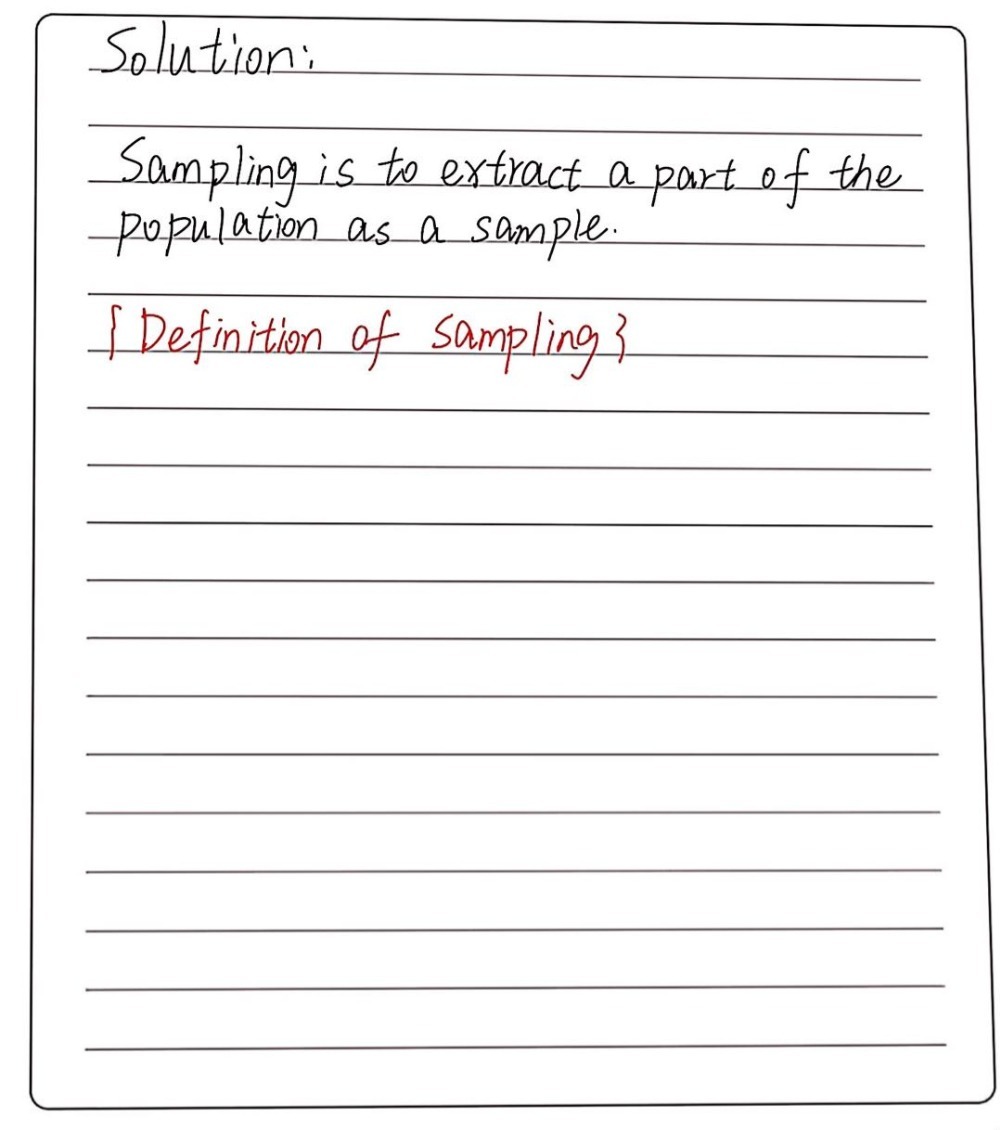 Solution:
Sampling is to extract a part of the
population as a sample.
{Definition of sampling}